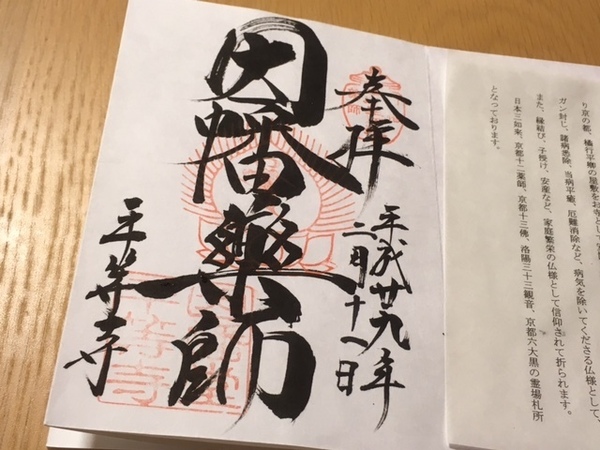 奉拝
平成廿九年
二月十八日
因幡薬師
平等寺
平等寺
り京の都、橘行平卿の屋敷をお寺として
ガン封じ、諸病悉除、当病平癒、厄難消除など、病気を除いてくださる仏様として、
また、縁結び、子授け、安産など、家庭繁栄の仏様として信仰されて折られます。
日本三如来、京都十二薬師、京都十三佛、洛陽三十三観音、京都六大黒の霊場札所
となっております。